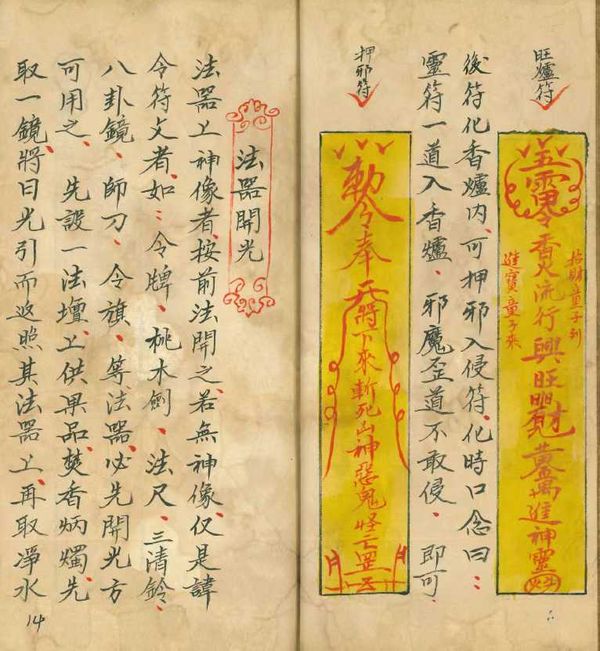 旺爐符
五雷令香火流行興旺財萬進神靈
招財童子到
進寶童子來
後符化香爐內、可押邪入侵符、化時口念曰：
靈符一道入香爐、邪魔歪道不敢侵、即可、
押邪符
勅令奉天將下來斬死凶神惡鬼怪亡罡
法器開光
法器上神像者、按前法開之、若無神像、仅是諱
令符文者、如：令牌、桃木劍、法尺、三清鈴、
八卦鏡、師刀、令旗、等法器、必先開光方
可用之、先設一法壇、上供果品、焚香炳燭、先
取一鏡、將日光引而返照其法器上、再取淨水
14